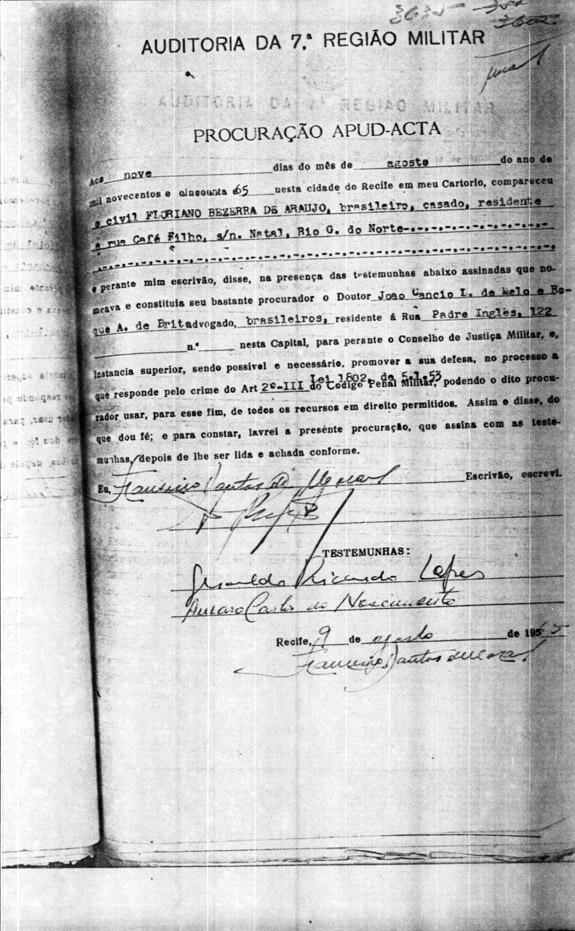 3635
3602
AUDITORIA DA 7.ª REGIÃO MILITAR
PROCURAÇÃO APUD-ACTA
Aos nove dias do mês de agosto do ano de
mil novecentos e cincoenta e65 nesta cidade do Recife em meu Cartorio, compareceu
o civil FLORIANO BEZERRA DE ARAUJO, brasileiro, casado, residente
a rua Café Filho, s/n. Natal, Rio G. do Norte
e perante mim escrivão, disse, na presença das testemunhas abaixo assinadas que no-
meava e constituia seu bastante procurador o Doutor João Cancio L. de Melo e Bo-
que A. de Brit advogado, brasileiros, residente á Rua Padre Inglês, 122
n.º nesta Capital, para perante o Conselho de Justiça Militar, e,
instancia superior, sendo possivel e necessário, promover a sua defesa, no processo a
que responde pelo crime do Art 2º-III Lei 1802, de 5.1.53 do Codigo Penal Militar, podendo o dito procu-
rador usar, para esse fim, de todos os recursos em direito permitidos. Assim e disse, do
que dou fé; e para constar, lavrei a presente procuração, que assina com as teste-
munhas, depois de lhe ser lida e achada conforme.
Eu, Escrivão, escrevi.
TESTEMUNHAS:
Geraldo Ricardo Lopes
Amaro Castro do Nascimento
Recife, 9 de agosto de 1965